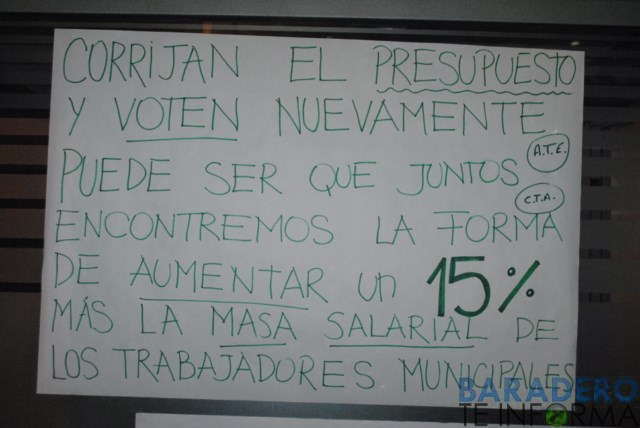 CORRIJAN EL PRESUPUESTO
Y VOTEN NUEVAMENTE
PUEDE SER QUE JUNTOS
A.T.E.
C.T.A.
ENCONTREMOS LA FORMA
DE AUMENTAR un 15%
MÁS LA MASA SALARIAL DE
LOS TRABAJADORES MUNICIPALES
BARADERO
TE INFORMA